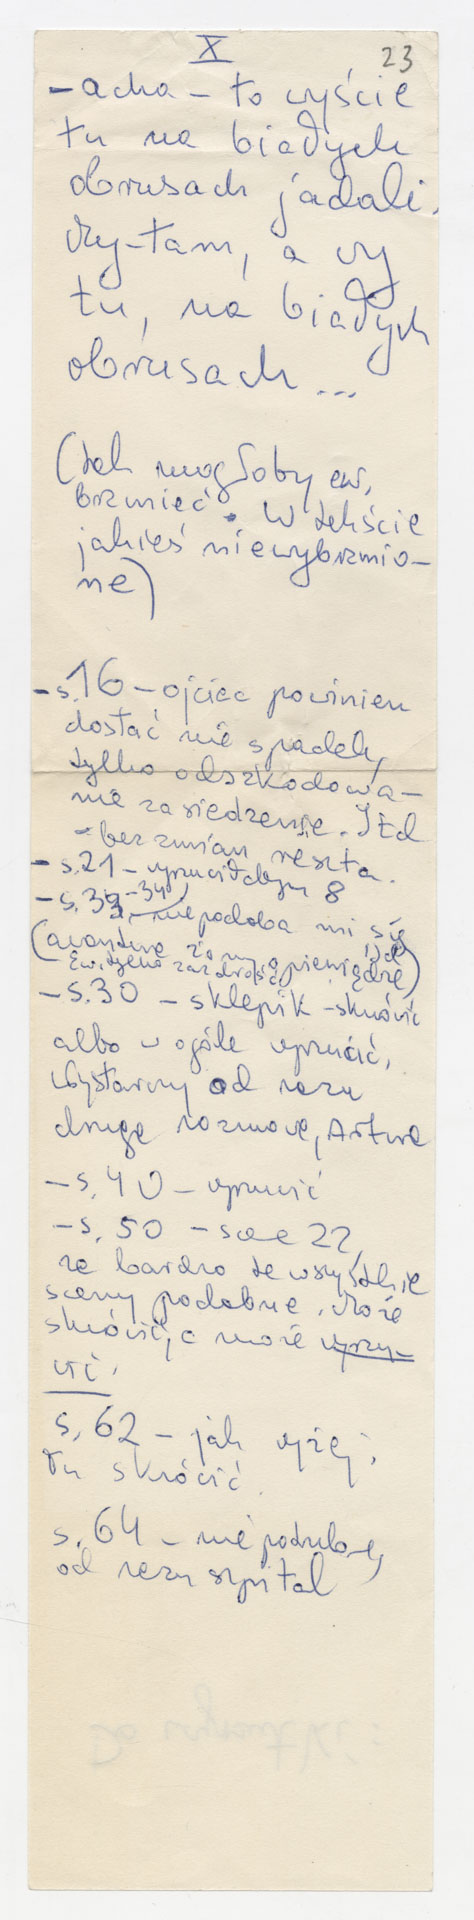 X 23
- acha - to wyście
tu na białych
obrusach jadali.
My-tam, a wy
tu, na białych
obrusach...
(tak mogłoby ew.
brzmieć. W tekście
jakieś niewybrzmio-
ne)
- s. 16 - ojciec powinien
dostać nie spadek,
tylko odszkodowa-
nie za siedzenie. I td
- bez zmian reszta.
- s. 21 - wyrzuciłabym 8
- s. 33 -34, nie podoba mi się
(awantura żony o pieniądze)
Ew. tylko zazdrość
- s. 30 - sklepik - skrócić
albo w ogóle wyrzucić,
Wystarczy od razu
drugą rozmowę, Artura
- s. 40 - wyrzucić
- s. 50 - sce 22,
za bardzo te wszystkie
sceny podobne. Może
skrócić, a może wyrzu-
cić.
s. 62 - jak wyżej,
Tu skrócić.
s. 64 - niepotrzebne,
od razu szpital